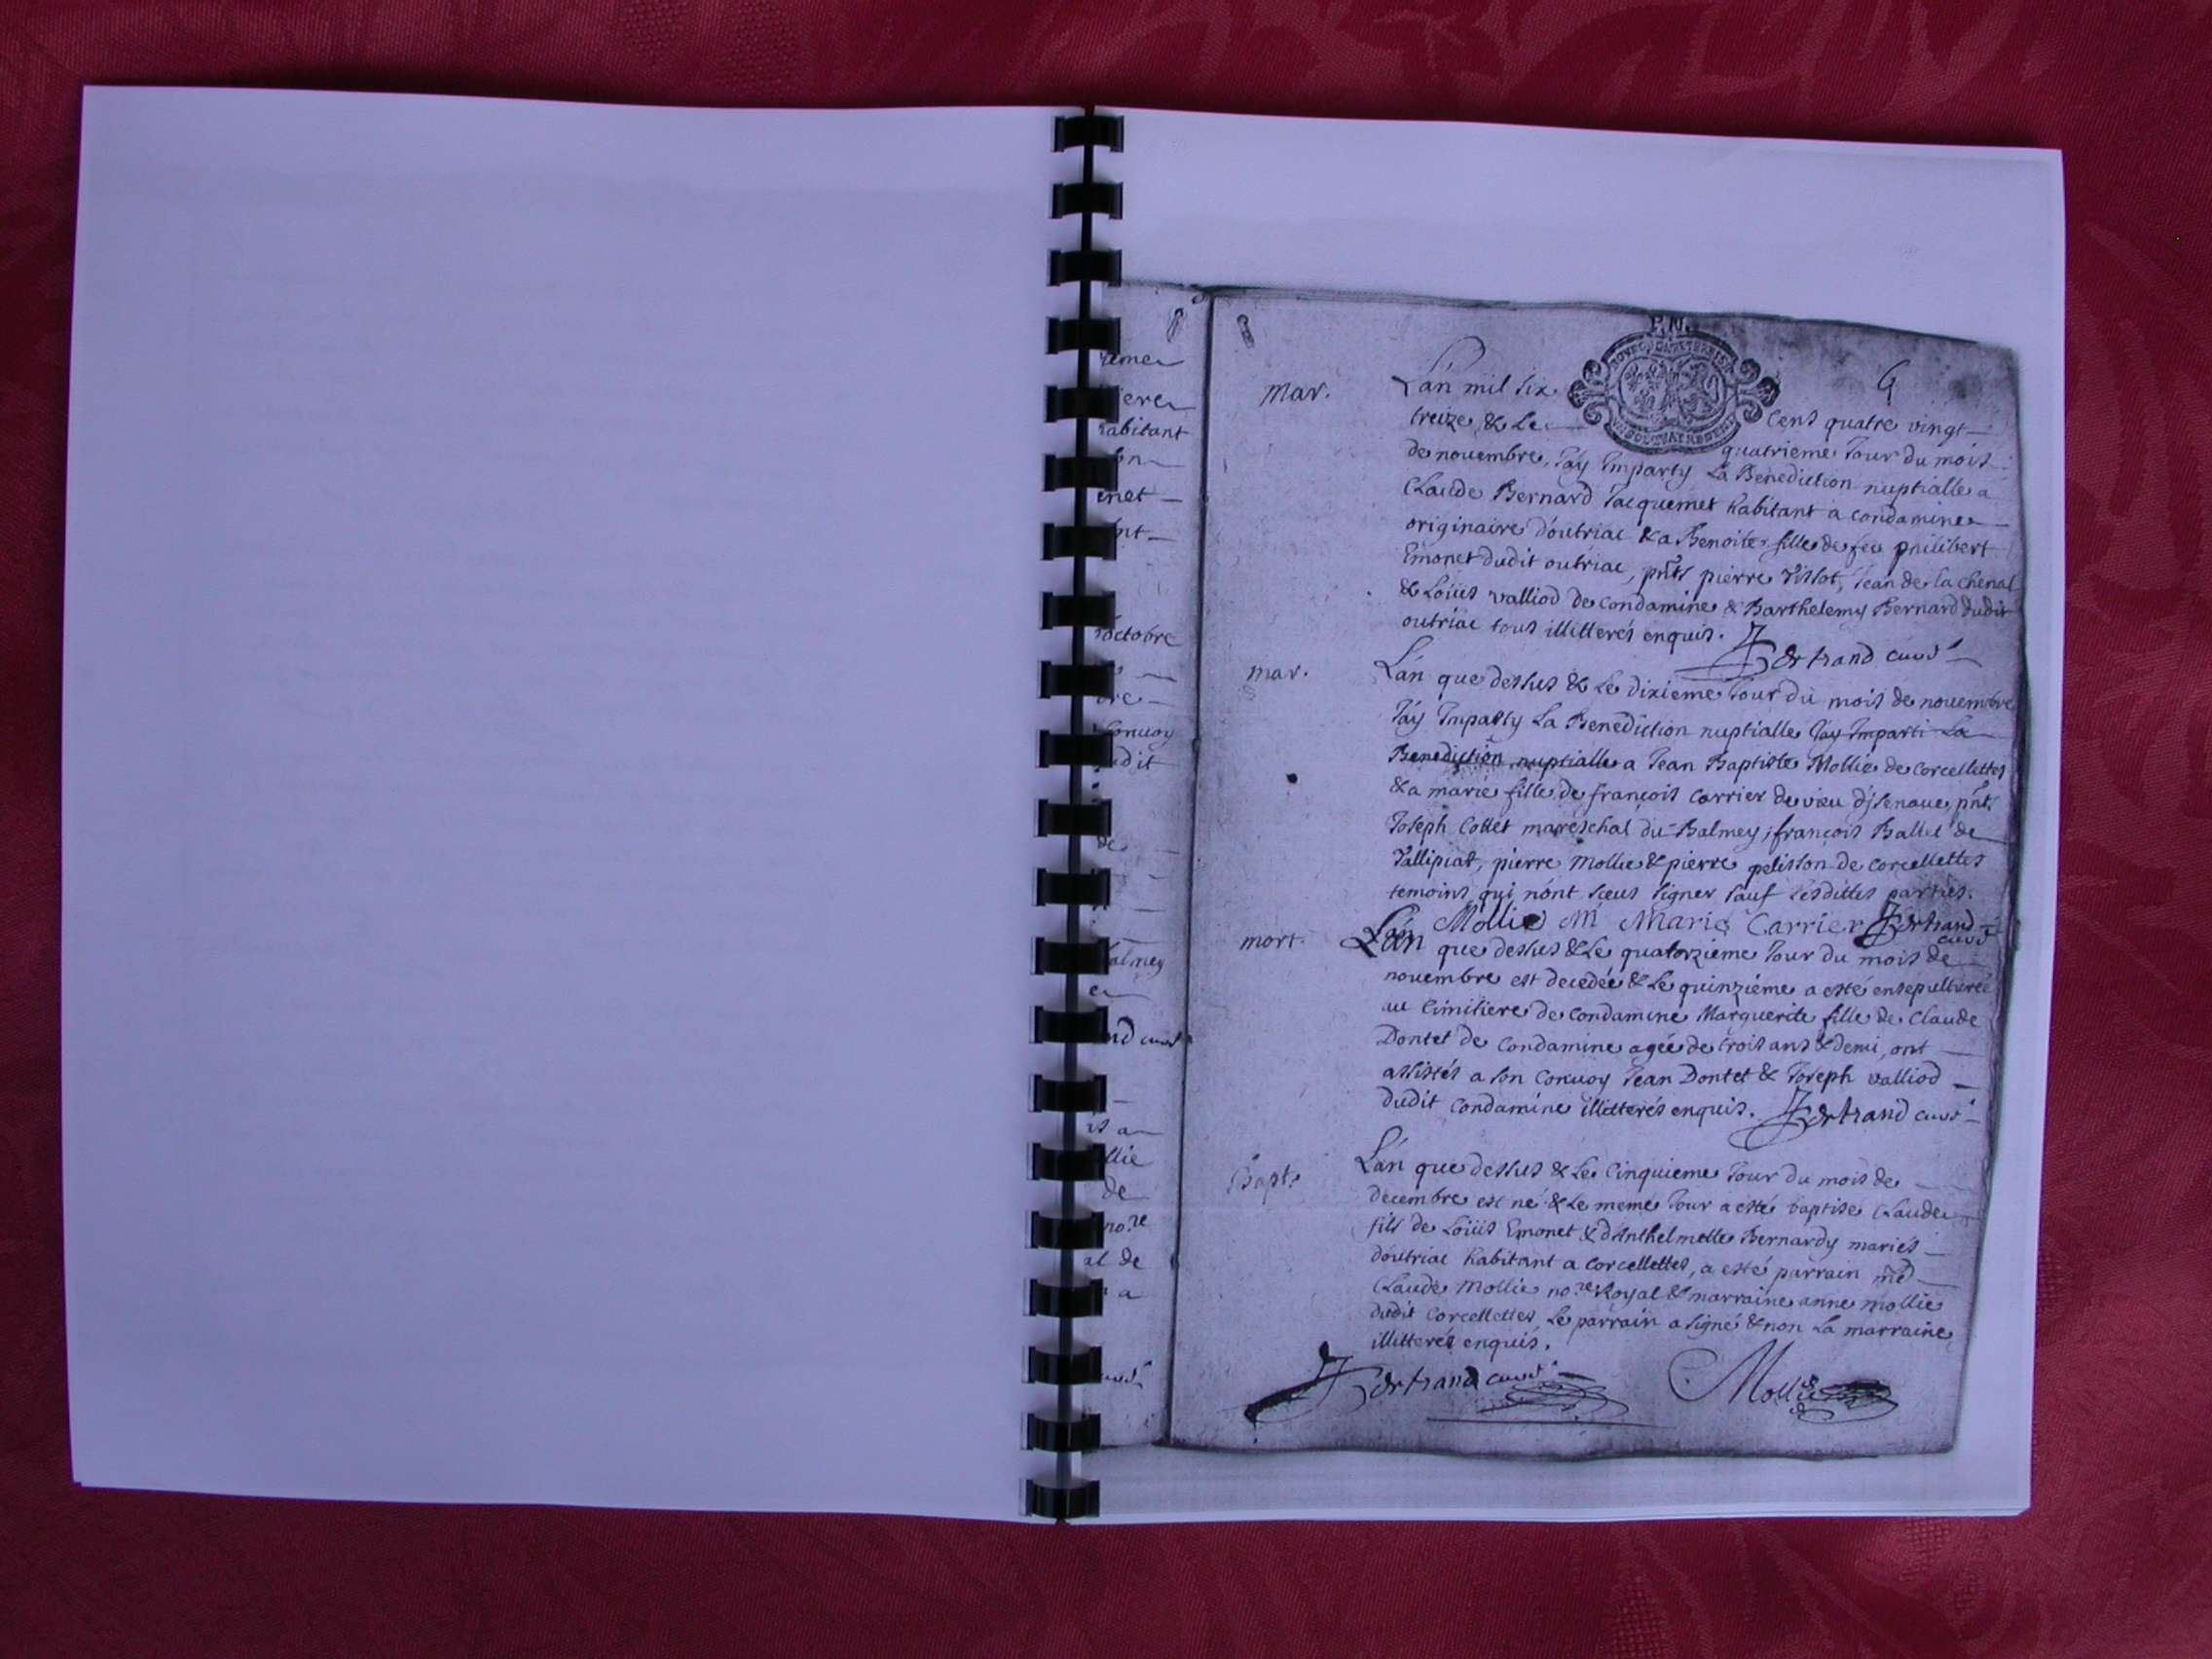 reme
iere
habitant
enet
octobre
bre
Conuoy
udit
de
Balmey
and curé
llie
de
no.re
al de
a
curé
P. N.
G
mar.
L'an mil six cens quatre vingt
treize, & Le quatrieme Jour du mois
de nouembre, J'ay Imparty La Benediction nuptialle a
Claude Bernard Jacquemet habitant a condamine
originaire d'outriac & a Benoite fille de feu philibert
Emonet dudit outriac, pñts pierre Tissot, Jean de la chenal
& Loüis valliod de condamine & Barthelemy Bernard dudit
outriac tous illitterés enquis. Bertrand curé
mar.
L'an que dessus & Le dixieme Jour du mois de nouembre
J'ay Imparty La Benediction nuptialle J'ay Imparti La
Benediction nuptialle a Jean Baptiste Mollie de corcellettes
& a marie fille de françois Carrier de vieu d'jsenaue, pñts
Joseph Collet mareschal du Balmey, françois Ballet de
Tallipiat, pierre mollie & pierre pelisson de corcellettes
temoins qui n'ont sceus signer sauf lesdittes parties.
Mollie M Marie Carrier Bertrand curé
mort.
L'an que dessus & Le quatorzieme Jour du mois de
nouembre est decedée & Le quinziéme a esté ensepulturée
au Cimitiere de condamine Marguerite fille de Claude
Dontet de Condamine agée de trois ans & demi, ont
assistés a son Conuoy Jean Dontet & Joseph valliod
dudit Condamine illitterés enquis. Bertrand curé
Bapt.
L'an que dessus & Le Cinquieme Jour du mois de
decembre est né & Le meme Jour a esté baptise Claude
fils de Loüis Emonet & d'Anthelmette Bernardy mariés
d'outriac habitant a Corcellettes, a esté parrain
Claude Mollie no.re Royal & marraine anne mollie
dudit Corcellettes, Le parrain a signé & non La marraine
illitterée enquis.
Bertrand curé Mollie